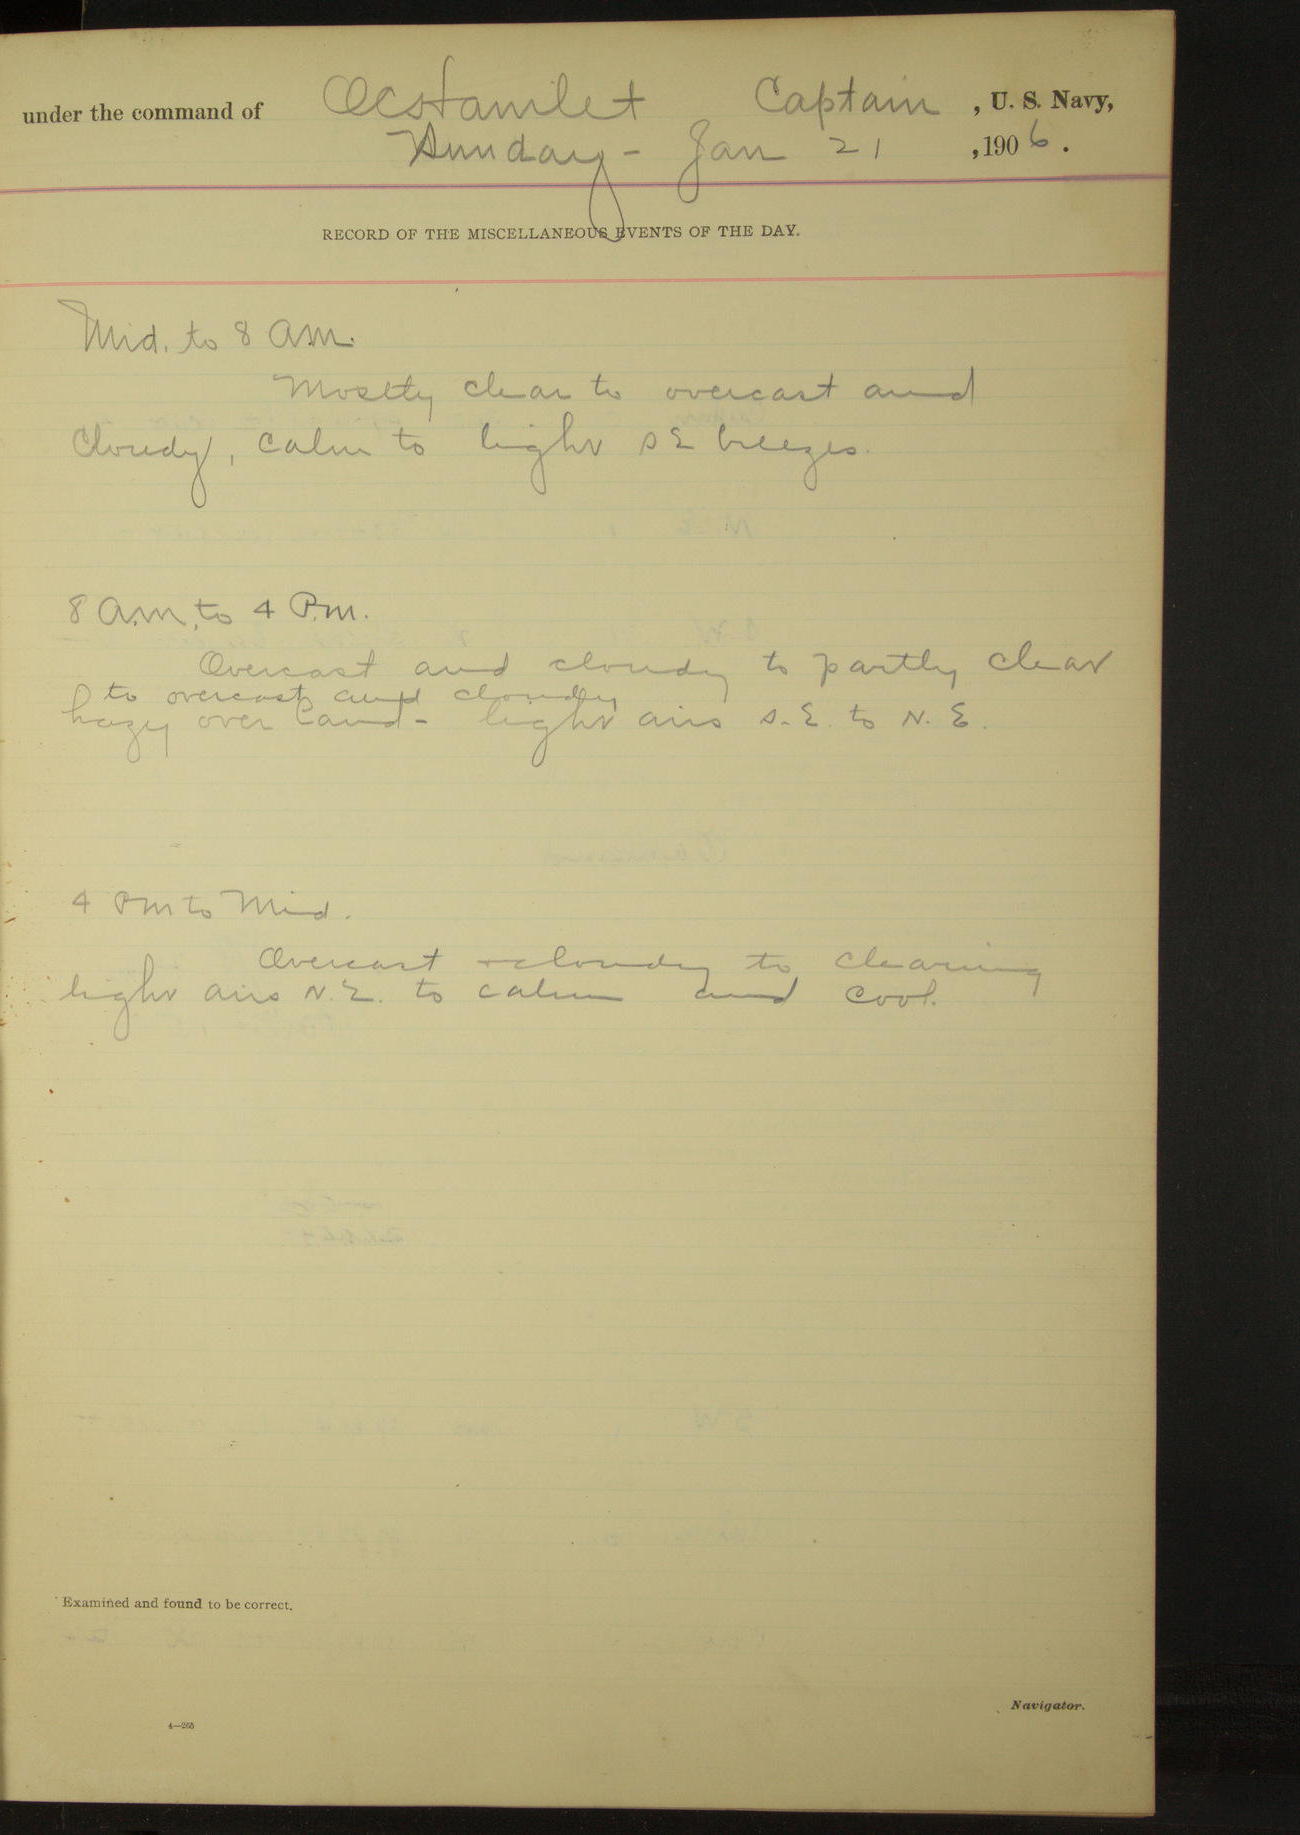 under the command of OCHamlet Captain, U. S. Navy,
Sunday - Jan 21, 1906.
RECORD OF THE MISCELLANEOUS EVENTS OF THE DAY.
Mid. to 8 am.
Mostly clear to overcast and
Cloudy, calm to light SE breezes.
8 a.m. to 4 P.m.
Overcast and cloudy to partly clear
to overcast and cloudy
hazy over land - light airs S.E. to N.E.
4 Pm to Mid.
Overcast + cloudy to clearing
light airs N.E. to calm and cool.
Examined and found to be correct.
Navigator.
4—265